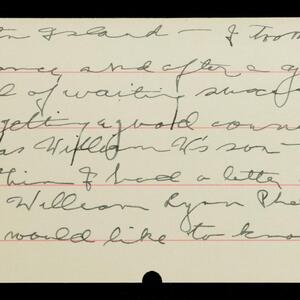 Island — I took
and after a g
of waiting succ
getting a good coun
as William K's son —
him I had a letter
William Ryan Phe
would like to kno